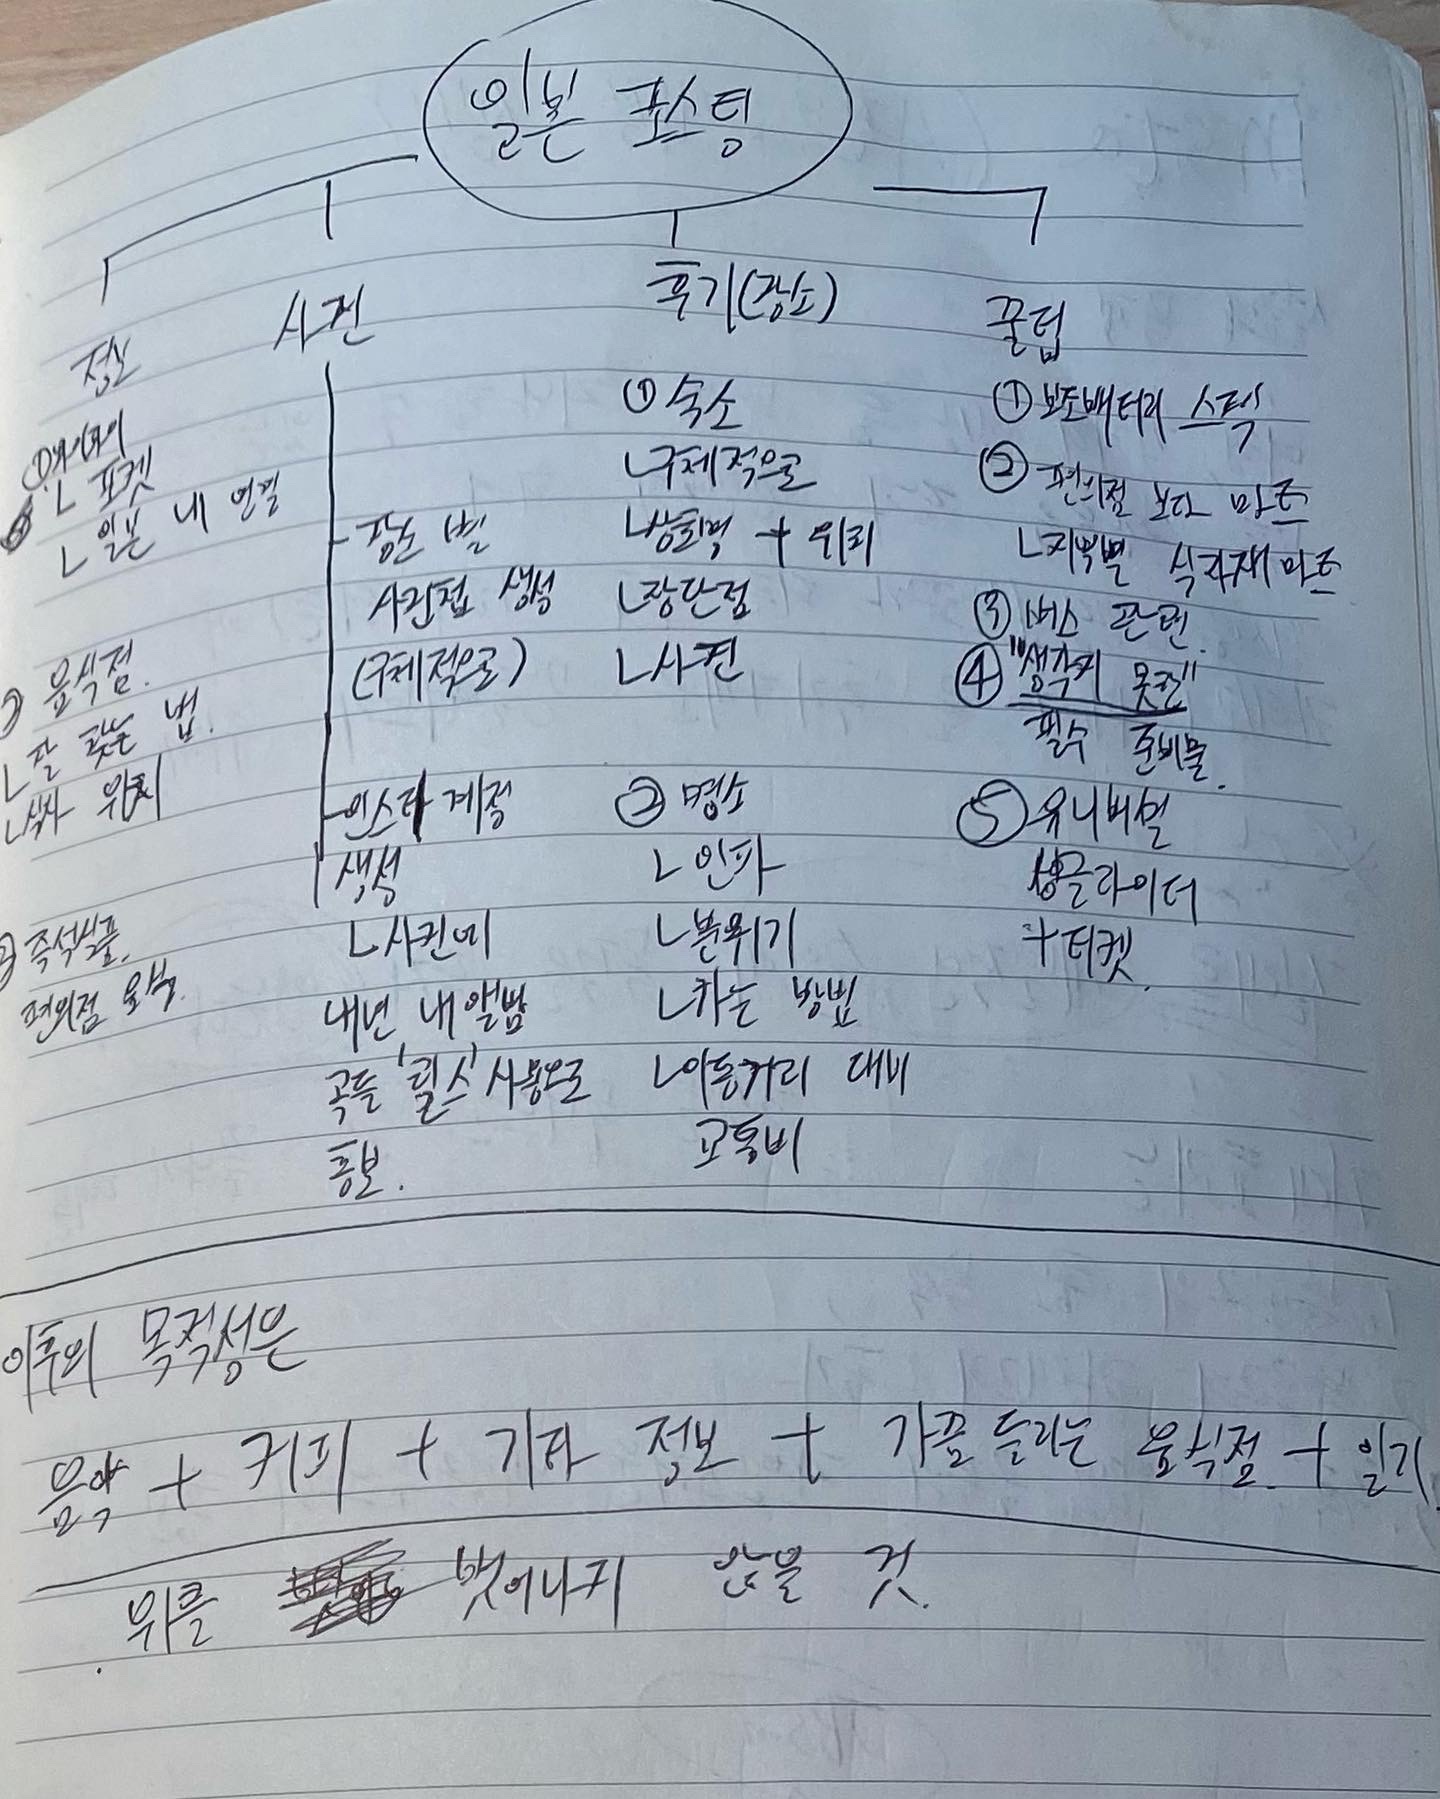 일본 포스팅
정보
① 와이파이
ㄴ 포켓
ㄴ 일본 내 연결
② 음식점.
ㄴ 잘 찾는 법.
ㄴ 식사 위치
③ 즉석식품.
편의점 음식.
사진
- 장소 별
사진첩 생성
(구체적으로)
- 인스타 계정
생성
ㄴ 사진 및
내년 내 앨범
곡들 '릴스' 사용으로
홍보.
후기(장소)
① 숙소
ㄴ 구체적으로
ㄴ 상호명 + 위치
ㄴ 장단점
ㄴ 사진
② 명소
ㄴ 인파
ㄴ 분위기
ㄴ 가는 방법
ㄴ 이동거리 대비
교통비
꿀팁
① 보조배터리 스펙
② 편의점 보다 마트
ㄴ 지역별 식자재 마트
③ 버스 관련.
④ "생각지 못한"
필수 준비물.
⑤ 유니버셜
싱글라이더
+ 티켓.
이후의 목적성은
음악 + 커피 + 기타 정보 + 가끔 들리는 음식점 + 일기.
위를 벗어나지 않을 것.